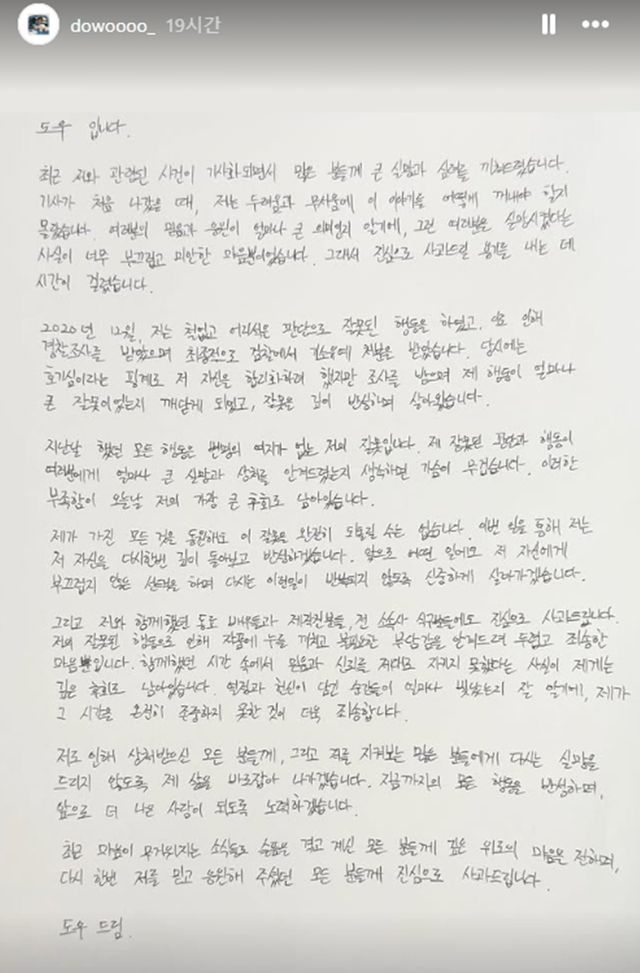 dowoooo_ 19시간
도우 입니다.
최근 저와 관련된 사건이 기사화되면서 많은 분들께 큰 실망과 심려를 끼쳐드렸습니다.
기사가 처음 나갔을 때, 저는 두려움과 무서움에 이 이야기를 어떻게 꺼내야 할지
몰랐습니다. 여러분의 믿음과 응원이 얼마나 큰 의미인지 알기에, 그런 여러분을 실망시켰다는
사실이 너무 부끄럽고 미안한 마음뿐이었습니다. 그래서 진심으로 사과드릴 용기를 내는 데
시간이 걸렸습니다.
2020년 12월, 저는 철없고 어리석은 판단으로 잘못된 행동을 하였고, 이로 인해
경찰조사를 받았으며 최종적으로 검찰에서 기소유예 처분을 받았습니다. 당시에는
호기심이라는 핑계로 저 자신을 합리화하려 했지만 조사를 받으며 제 행동이 얼마나
큰 잘못이었는지 깨닫게 되었고, 잘못을 깊이 반성하며 살아왔습니다.
지난날 했던 모든 행동은 변명의 여지가 없는 저의 잘못입니다. 제 잘못된 판단과 행동이
여러분에게 얼마나 큰 실망과 상처를 안겨드렸는지 생각하면 가슴이 무겁습니다. 이러한
부족함이 오늘날 저의 가장 큰 후회로 남아있습니다.
제가 가진 모든 것을 동원해도 이 잘못을 완전히 되돌릴 수는 없습니다. 이번 일을 통해 저는
저 자신을 다시한번 깊이 돌아보고 반성하겠습니다. 앞으로 어떤 일에도 저 자신에게
부끄럽지 않은 선택을 하며 다시는 이런일이 반복되지 않도록 신중하게 살아가겠습니다.
그리고 저와 함께했던 동료 배우들과 제작진분들, 전 소속사 식구분들에도 진심으로 사과드립니다.
저의 잘못된 행동으로 인해 작품에 누를 끼치고 불필요한 부담감을 안겨드려 두렵고 죄송한
마음뿐입니다. 함께했던 시간 속에서 믿음과 신뢰를 제대로 지키지 못했다는 사실이 제게는
깊은 후회로 남아있습니다. 열정과 헌신이 담긴 순간들이 얼마나 빛났는지 잘 알기에, 제가
그 시간을 온전히 존중하지 못한 것이 더욱 죄송합니다.
저로 인해 상처받으신 모든 분들께, 그리고 저를 지켜보는 많은 분들에게 다시는 실망을
드리지 않도록 제 삶을 바로잡아 나가겠습니다. 지금까지의 모든 행동을 반성하며,
앞으로 더 나은 사람이 되도록 노력하겠습니다.
최근 마음이 무거워지는 소식들로 슬픔을 겪고 계신 모든 분들께 깊은 위로의 마음을 전하며,
다시 한번 저를 믿고 응원해 주셨던 모든 분들께 진심으로 사과드립니다.
도우 드림.